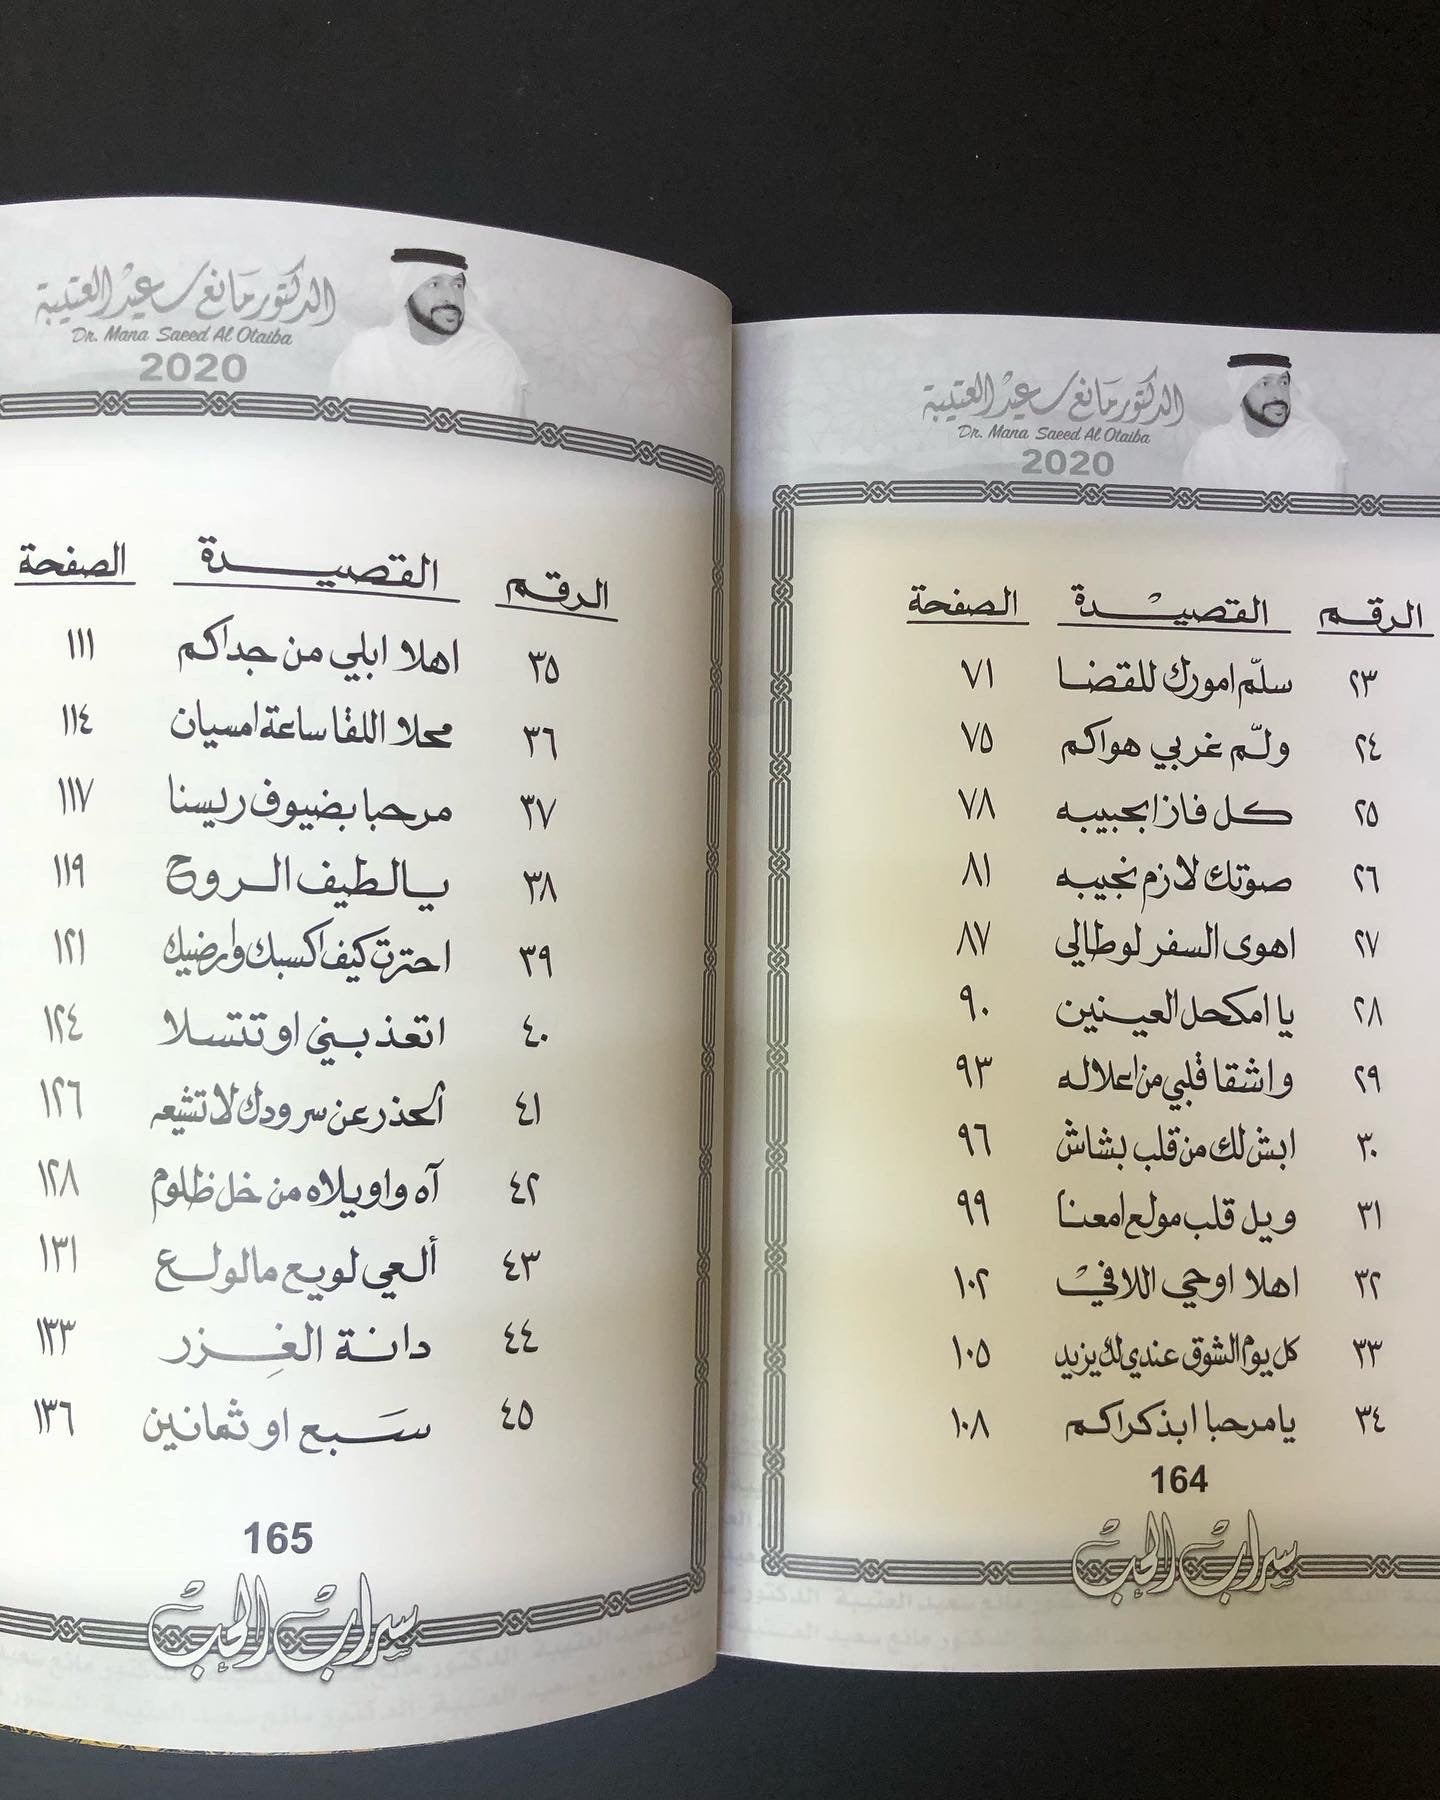 الدكتور مانع سعيد العتيبة
Dr. Mana Saeed Al Otaiba
2020
الرقم القصيدة الصفحة
٢٣ سلّم امورك للقضا ٧١
٢٤ ولّم غربي هواكم ٧٥
٢٥ كل فاز ابحبيبه ٧٨
٢٦ صوتك لازم نجيبه ٨١
٢٧ اهوى السفر لوطالي ٨٧
٢٨ يا امكحل العينين ٩٠
٢٩ واشقا قلبي من اعلاله ٩٣
٣٠ ابش لك من قلب بشاش ٩٦
٣١ ويل قلب مولع امعنا ٩٩
٣٢ اهلا اوحي اللافي ١٠٢
٣٣ كل يوم الشوق عندي لك يزيد ١٠٥
٣٤ يا مرحبا ابذكراكم ١٠٨
164
سراب الحب
الدكتور مانع سعيد العتيبة
Dr. Mana Saeed Al Otaiba
2020
الرقم القصيدة الصفحة
٣٥ اهلا ابلي من جداكم ١١١
٣٦ محلا اللقا ساعة امسيان ١١٤
٣٧ مرحبا بضيوف ريسنا ١١٧
٣٨ يالطيف الروح ١١٩
٣٩ احترت كيف اكسبك وارضيك ١٢١
٤٠ اتعذبني او تتسلا ١٢٤
٤١ ألحذر عن سرودك لا تشيعه ١٢٦
٤٢ آه واويلاه من خل ظلوم ١٢٨
٤٣ ألعي لويع مالولع ١٣١
٤٤ دانة الغِزر ١٣٣
٤٥ سَبع او ثمانين ١٣٦
165
سراب الحب